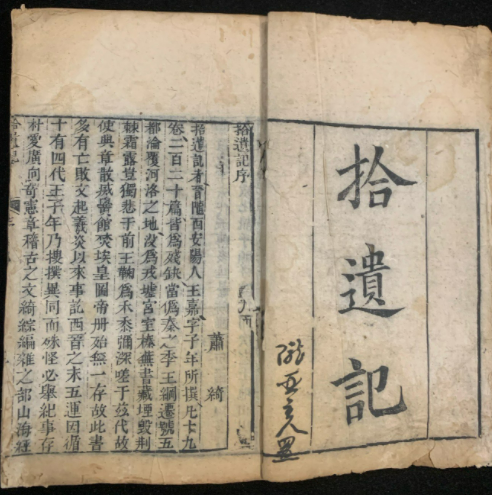 拾遺記
拾遺記序
蕭綺
拾遺記者晉隴西安陽人王嘉字子年所撰凡十九
卷二百二十篇皆為殘缺當偽秦之季王綱遷號五
都淪覆河洛之地沒為戎墟宮室榛蕪書藏堙毀荆
棘霜露豈獨悲于前王鞠為禾黍彌深嗟于茲代故
使典章散滅黌館焚埃皇圖帝册殆無一存故此書
多有亡散文起羲炎以來事訖西晉之末五運因循
十有四代王子年乃搜撰異同而殊怪必舉紀事存
朴愛廣向奇憲章稽古之文綺綜編雜之部山海經